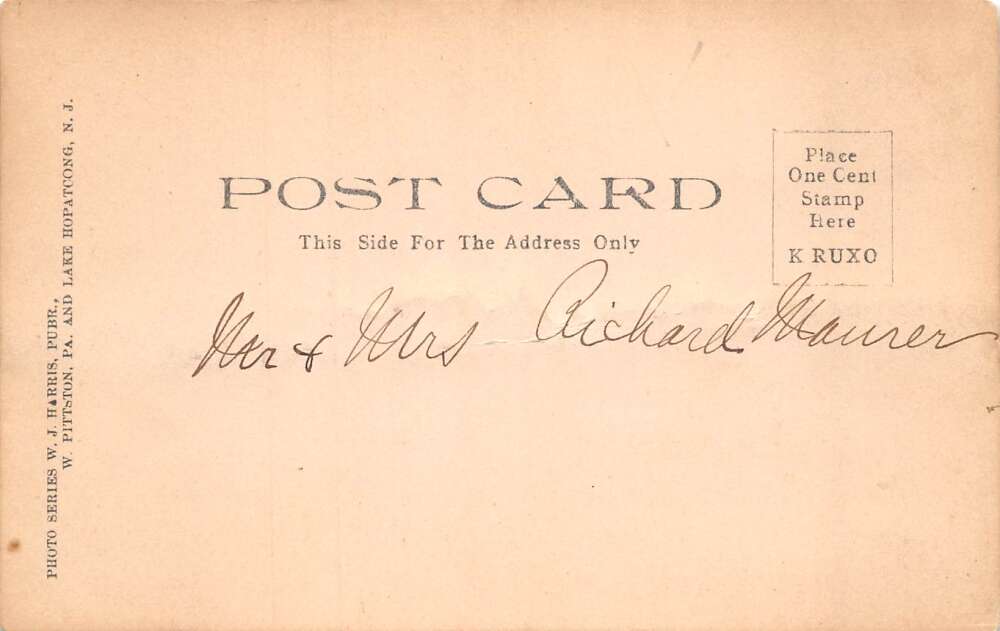 POST CARD
This Side For The Address Only
Place
One Cent
Stamp
Here
K RUXO
Mr & Mrs Richard Maurer
PHOTO SERIES W. J. HARRIS, PUBR.,
W. PITTSTON, PA. AND LAKE HOPATCONG, N. J.